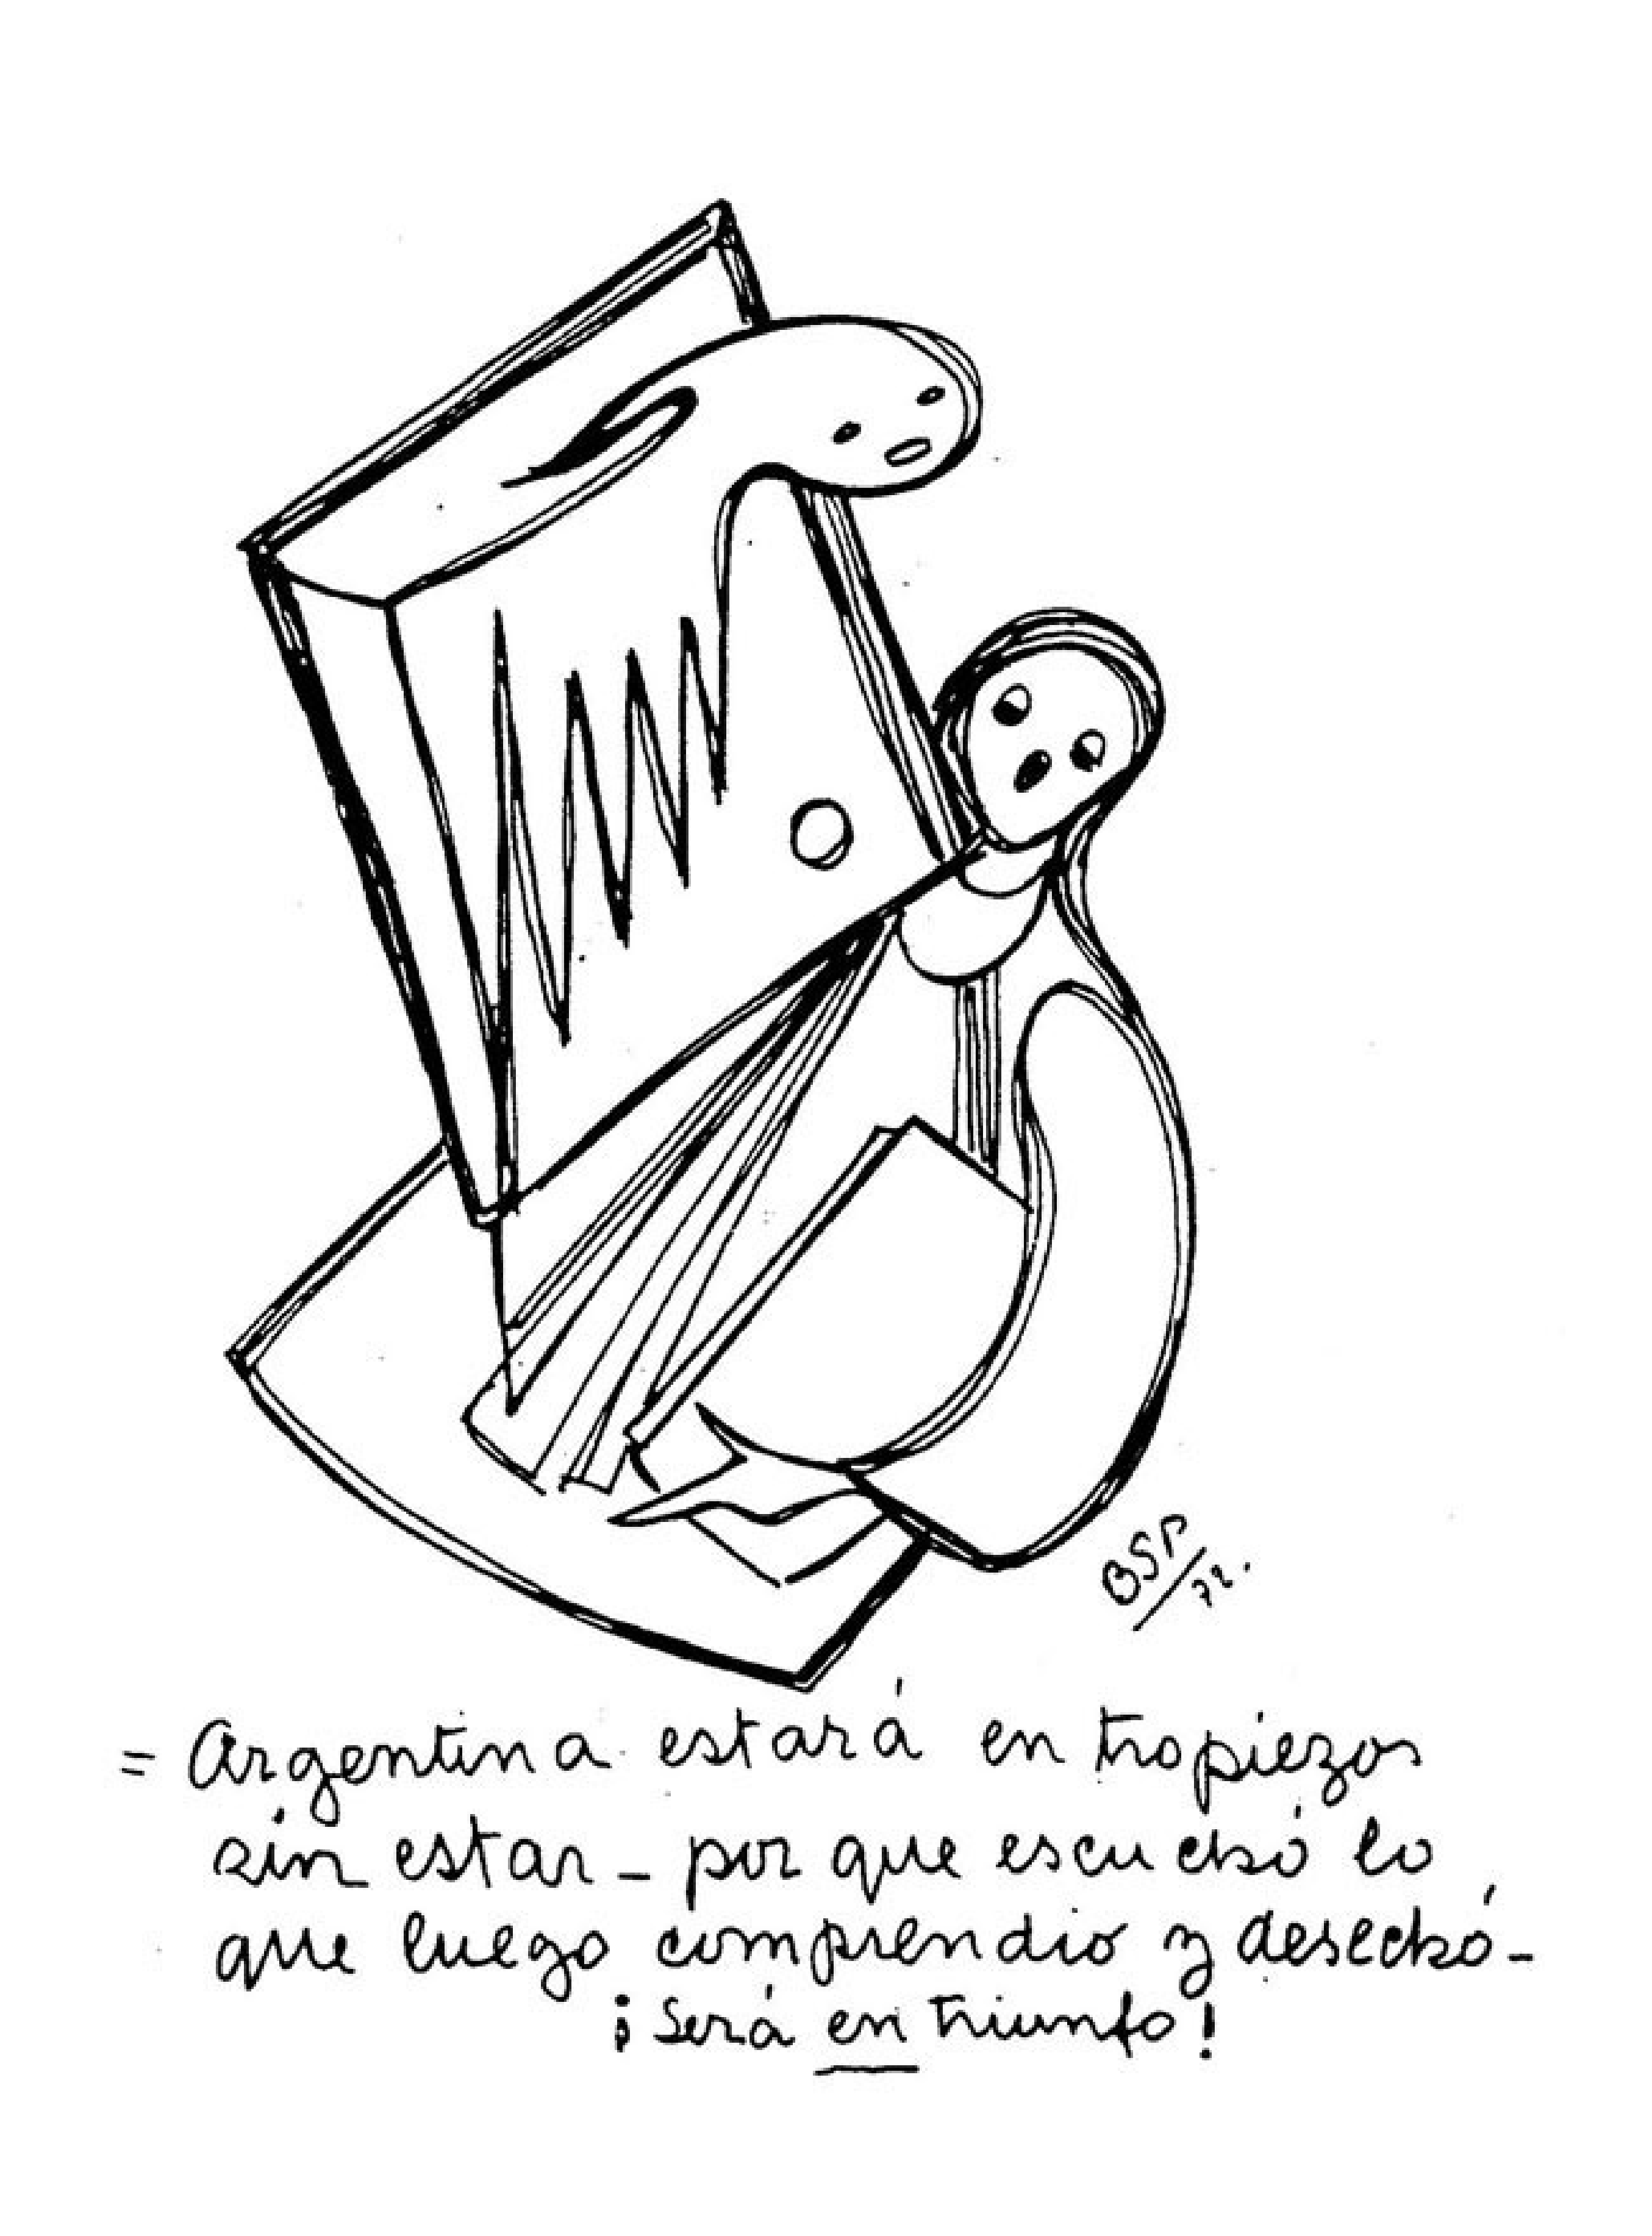 BSP/72.
= Argentina estará en tropiezos
sin estar - por que escuchó lo
que luego comprendio y desechó -
¡Será en triunfo!